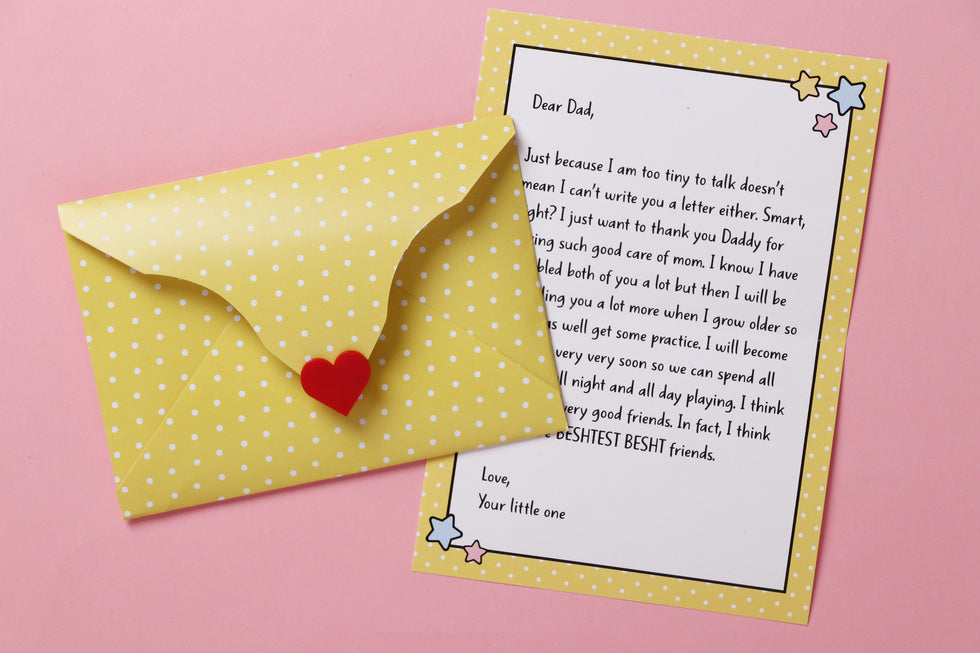 Dear Dad,
Just because I am too tiny to talk doesn't
mean I can't write you a letter either. Smart,
ght? I just want to thank you Daddy for
ing such good care of mom. I know I have
bled both of you a lot but then I will be
ling you a lot more when I grow older so
as well get some practice. I will become
very very soon so we can spend all
ll night and all day playing. I think
very good friends. In fact, I think
e BESHTEST BESHT friends.
Love,
Your little one